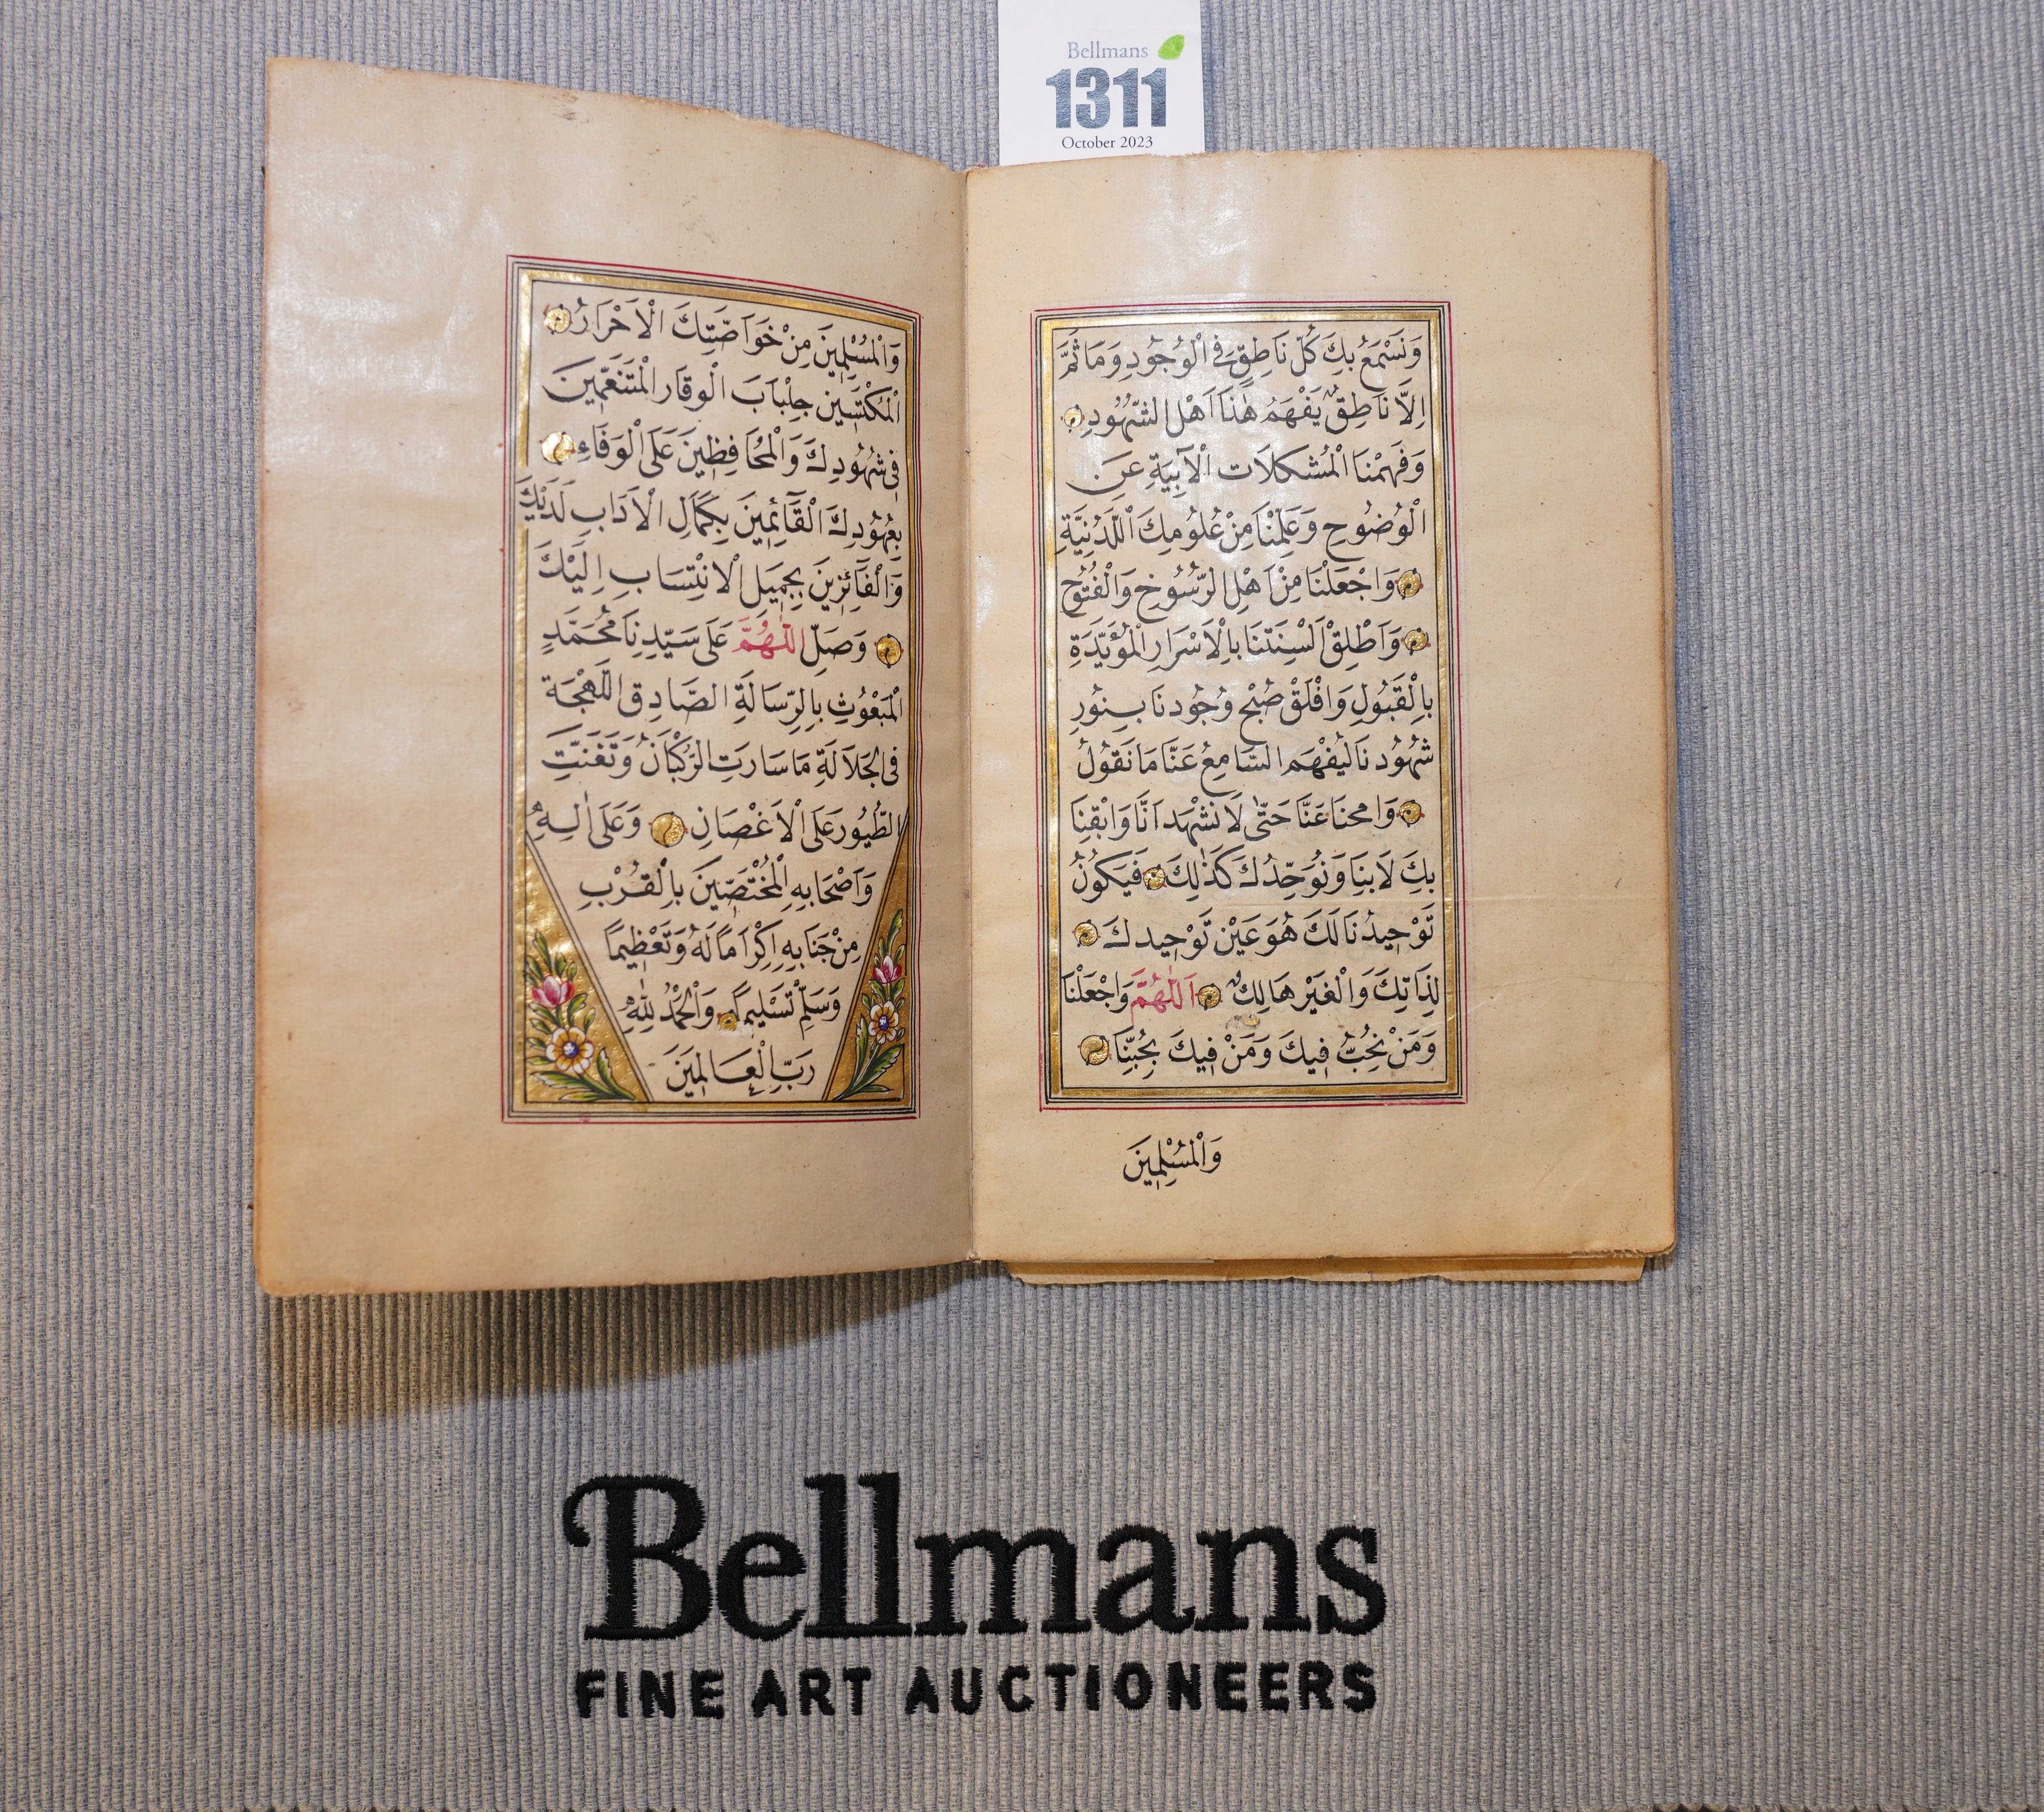 Bellmans
1311
October 2023
وَنَسْمَعُ بِكَ كُلَّ نَاطِقٍ فِى الْوُجُودِ وَمَا ثَمَّ
اِلَّا نَاطِقٌ يَفْهَمُ هٰذَا اَهْل الشُّهُودِ
وَفَهِّمْنَا الْمُشْكِلَات الْاَبِيَةِ عَنِ
الْوُضُوحِ وَعَلِّمْنَا مِنْ عُلُومِكَ الْلَّدُنِيَّةِ
وَاجْعَلْنَا مِنْ اَهْلِ الرُّسُوخِ وَالْفُتُوحِ
وَاَطْلِقْ اَلْسِنَتَنَا بِاْلاَسْرَارِ الْمُؤَيَّدَةِ
بِالْقَبُولِ وَافْلَقْ صُبْحَ وُجُودِنَا بِنُورِ
شُهُودِنَا لِيَفْهَم السَّامِعُ عَنَّا مَا نَقُولُ
وَامحنَا عَنَّا حَتّٰى لَا نَشْهَد اَنَّا وَابْقِنَا
بِكَ لَا بِنَا وَنُوَحِّدُكَ كَذٰلِكَ فَيَكُونُ
تَوْحِيدُنَا لَكَ هُوَ عَيْن تَوْحِيدكَ
لِذَاتِكَ وَالْغَيْر هَالِكٌ اَللّٰهُمَّ وَاجْعَلْنَا
وَمَنْ نُحِبُّ فِيكَ وَمَنْ فِيكَ يُحِبُّنَا
وَالْمُسْلِمِينَ
وَالْمُسْلِمِينَ مِنْ خَوَاصَّتِكَ الْاَحْرَارُ
الْمُكْتَسِين جِلْبَابَ الْوِقَار الْمُتَنَعِّمِينَ
فِى شُهُودِكَ وَالْمُحَافِظِينَ عَلَى الْوَفَاءِ
بِعُهُودِكَ الْقَآئِمِينَ بِكَمَالِ الْاَدَابِ لَدَيْكَ
وَالْفَآئِزِينَ بِجَمِيلِ الْاِنْتِسَابِ اِلَيْكَ
وَصَلِّ اللّٰهُمَّ عَلَى سَيِّدِنَا مُحَمَّدٍ
الْمَبْعُوثِ بِالرِّسَالَةِ الصَّادِقِ اللَّهْجَة
فِى الْجَلَالَةِ مَا سَارَتِ الرُّكْبَانُ وَتَغَنَّتِ
الطُّيُور عَلَى الْاَغْصَانِ وَعَلَى اٰلِهِ
وَاَصْحَابِهِ الْمُخْتَصِّينَ بِالْقُرْبِ
مِنْ جَنَابِهِ اِكْرَامًا لَهُ وَتَعْظِيمًا
وَسَلِّمْ تَسْلِيمًا وَالْحَمْدُ لِلّٰهِ
رَبِّ الْعَالَمِينَ
Bellmans
FINE ART AUCTIONEERS